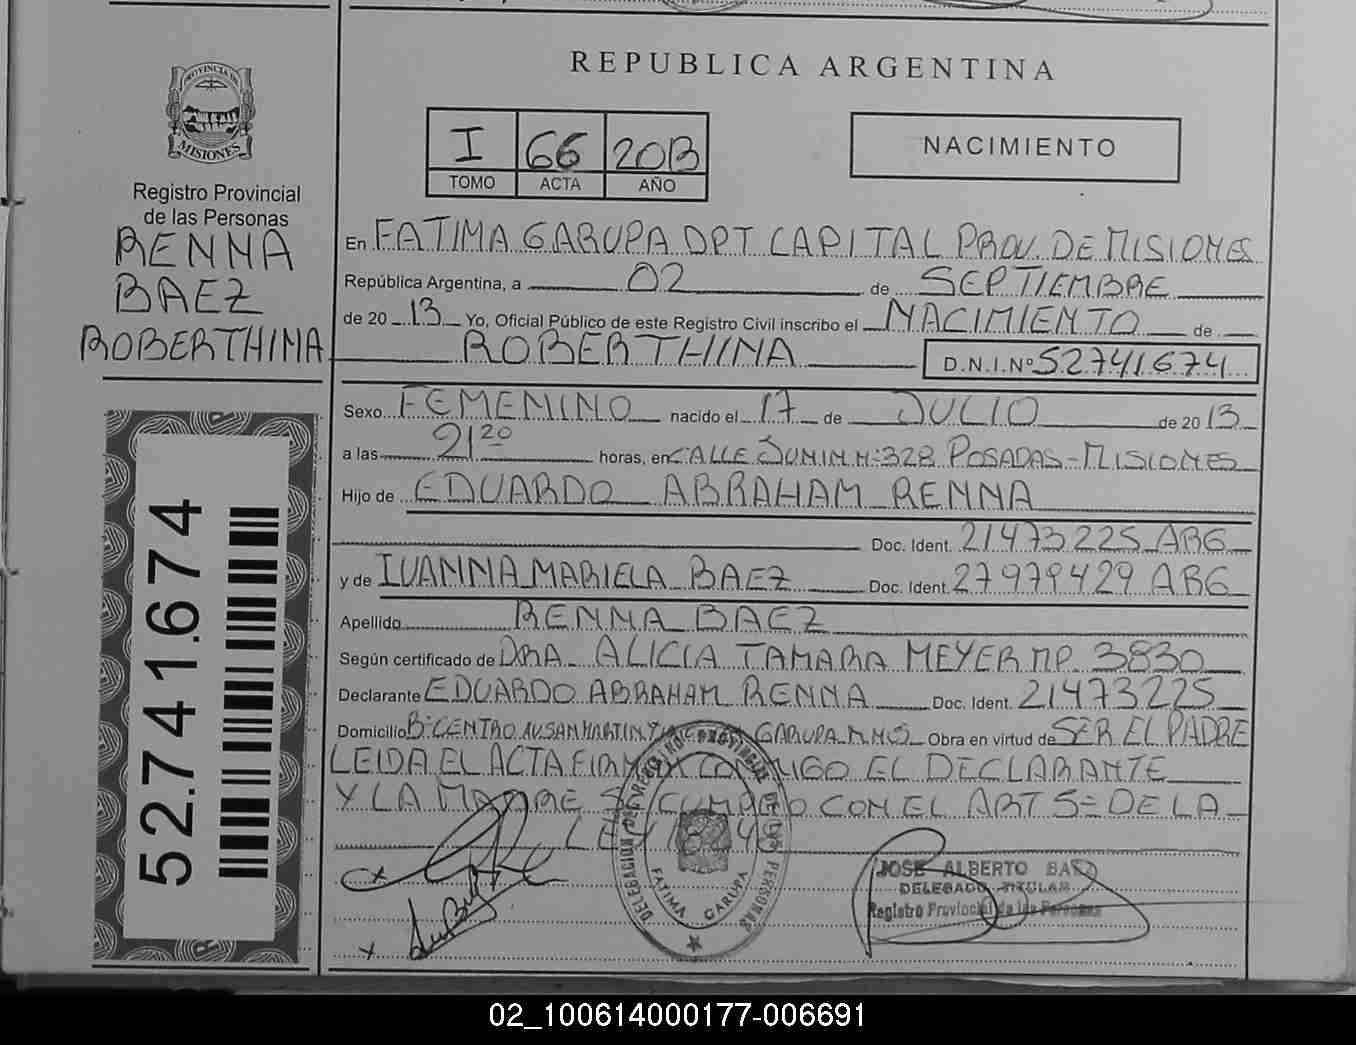 REPUBLICA ARGENTINA
PROVINCIA DE
MISIONES
Registro Provincial
de las Personas
RENNA
BAEZ
ROBERTHINA
52.741.674
I 66 2013
TOMO ACTA AÑO
NACIMIENTO
En FATIMA GARUPA DPT CAPITAL PROV. DE MISIONES
República Argentina, a 02 de SEPTIEMBRE
de 20 13 Yo, Oficial Público de este Registro Civil inscribo el NACIMIENTO de
ROBERTHINA D.N.I.Nº 52741674
Sexo FEMENINO nacido el 17 de JULIO de 20 13
a las 21 20 horas, en CALLE JUNIN Nº 328 POSADAS - MISIONES
Hijo de EDUARDO ABRAHAM RENNA
Doc. Ident. 21473225 ARG
y de IVANNA MARIELA BAEZ Doc. Ident. 27979429 ARG
Apellido RENNA BAEZ
Según certificado de DRA. ALICIA TAMARA MEYER MP. 3830
Declarante EDUARDO ABRAHAM RENNA Doc. Ident. 21473225
Domicilio Bº CENTRO AV SAN MARTIN Y GARUPA MNES Obra en virtud de SER EL PADRE
LEIDA EL ACTA FIRMAN CONMIGO EL DECLARANTE
Y LA MADRE SE CUMPLIO CON EL ART 5º DE LA
LEY 18248
DELEGACION DEL REGISTRO PROVINCIAL DE LAS PERSONAS
FATIMA GARUPA
JOSE ALBERTO BAEZ
DELEGADO TITULAR
Registro Provincial de las Personas
02_100614000177-006691